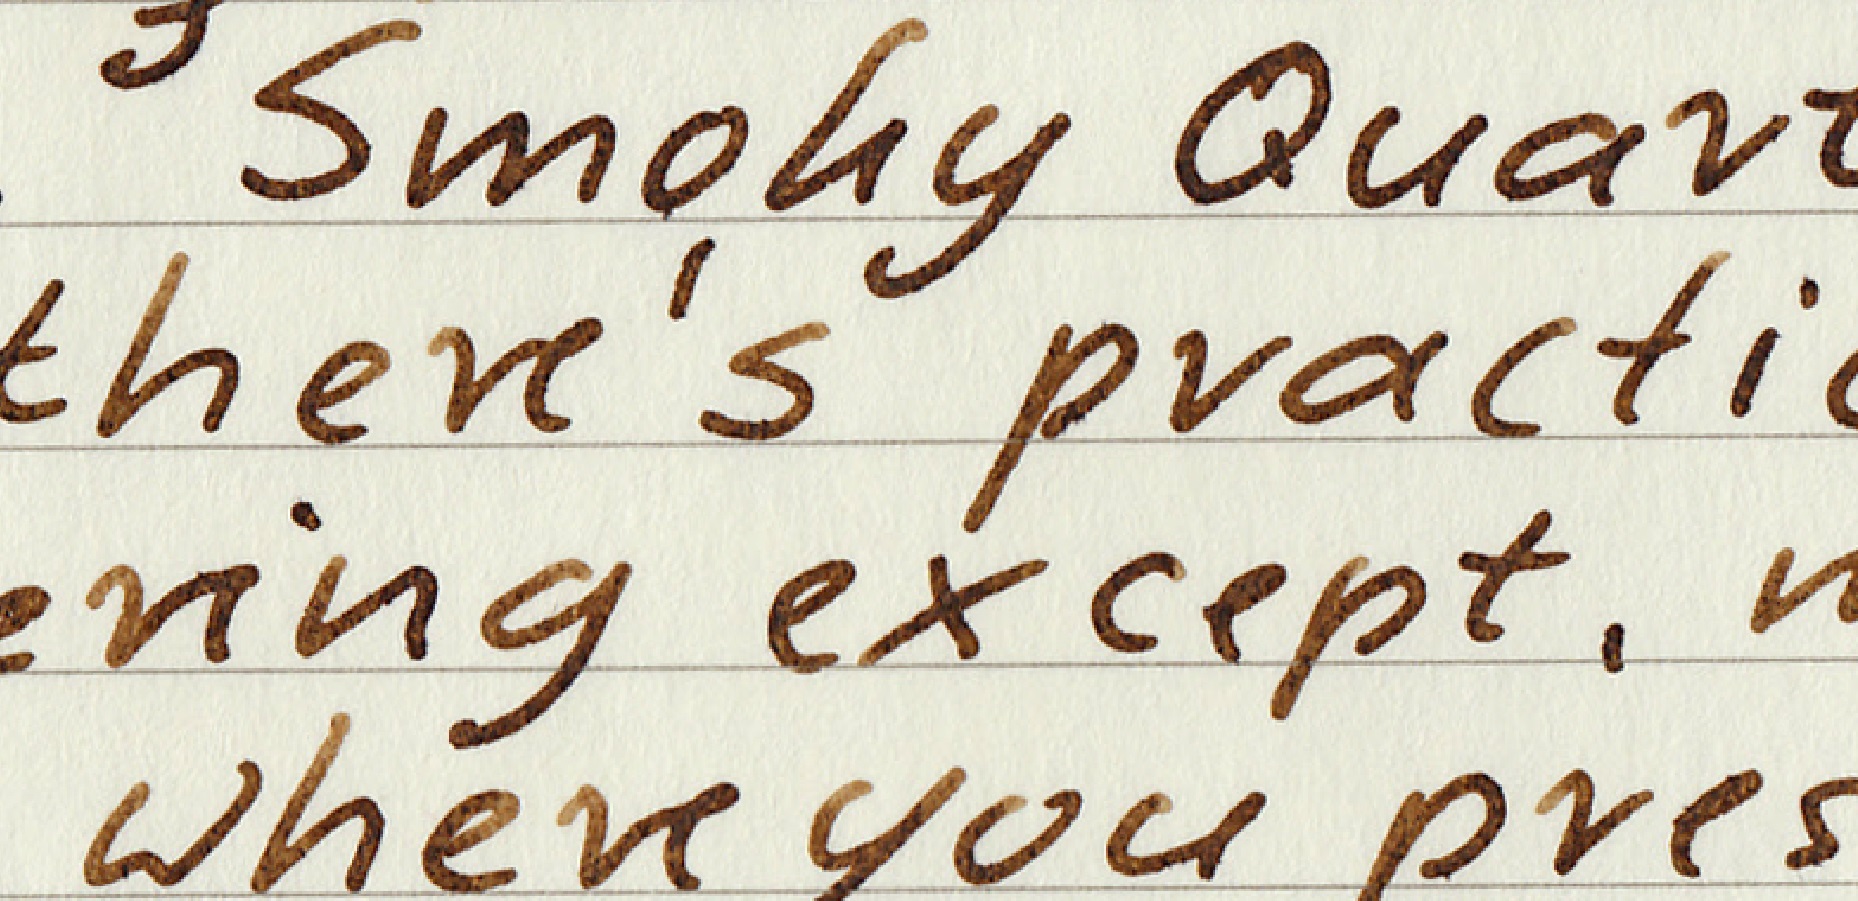 Smoky Quart
there's practic
ering except.
where you pres